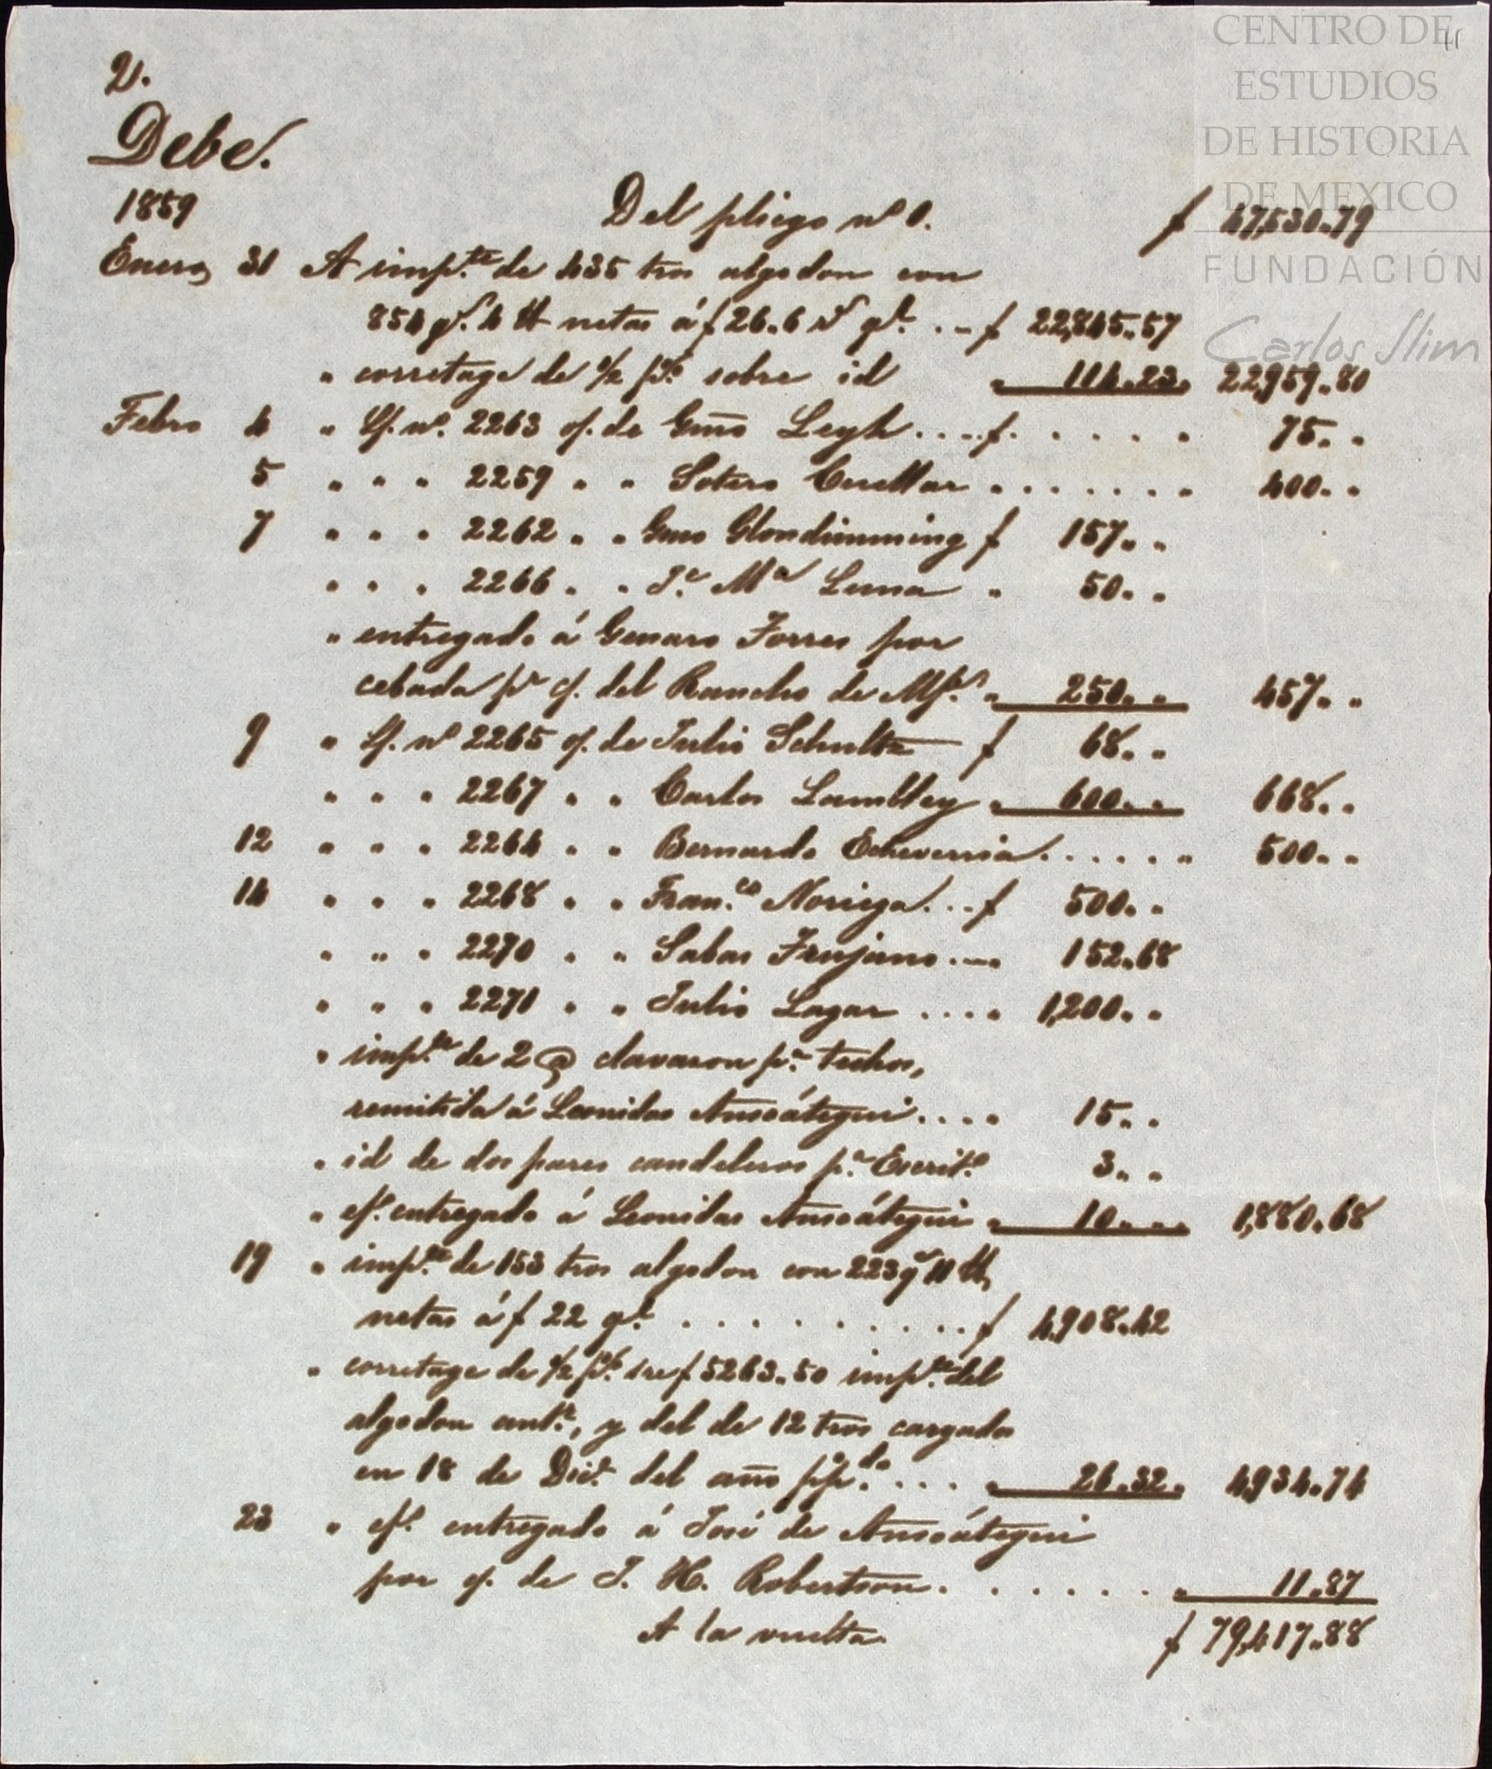 CENTRO DE
ESTUDIOS
DE HISTORIA
DE MEXICO
FUNDACIÓN
Carlos Slim
2.
Debe.
1859 Del pliego nº 1. $ 47,530.79
Enero 31 A imp.te de 435 tros algodon con
854 qs. 4 lb netas á $ 26.6 rs ql. .. $ 22,845.57
" corretage de ½ p% sobre id " 114.23. 22,959.80
Febro 4 " L/. nº. 2263 o/. de Gmo Leyh .... $ . . . . . 75. .
5 " " " 2259 " " Sotero Cuellar . . . . . . " 400. .
7 " " " 2262 " " Gmo Glondimming $ 157. .
" " " 2266 " " J.e Ma Luna " 50. .
" entregado á Genaro Torres por
cebada pr c/. del Rancho de " 250. . 457. .
9 " L/. nº 2265 o/. de Julio Schultz $ 68. .
" " " 2267 " " Carlos Lambley " 600. . 668. .
12 " " " 2264 " " Bernardo Echeverria . . . . . " 500. .
14 " " " 2268 " " Fran.co Noriega . .. $ 500. .
" " " 2270 " " Sabas Trujano ... " 152.68
" " " 2271 " " Julio Lagar .... " 1,200. .
" imp.te de 2 @ clavazon p.a techos,
remitida á Leonidas Ansoátegui .... " 15. .
" id de dos pares candeleros p.a Escrit.o 3. .
" ef.o entregado á Leonidas Ansoátegui " 10. . . 1,880.68
19 " imp.te de 153 tros algodon con 223 qs 11 lb
netas á $ 22 ql. . . . . . . . . . . $ 4,908.42
" corretage de ½ p% sre $ 5263.50 imp.te del
algodon ant.r, y del de 12 tros cargados
en 18 de Dice. del año ppdo. ... " 26.32. 4,934.74
23 " ef.o entregado á José de Ansoátegui
por o/. de J. H. Robertson . . . . . . " 11.87
A la vuelta $ 79,417.88